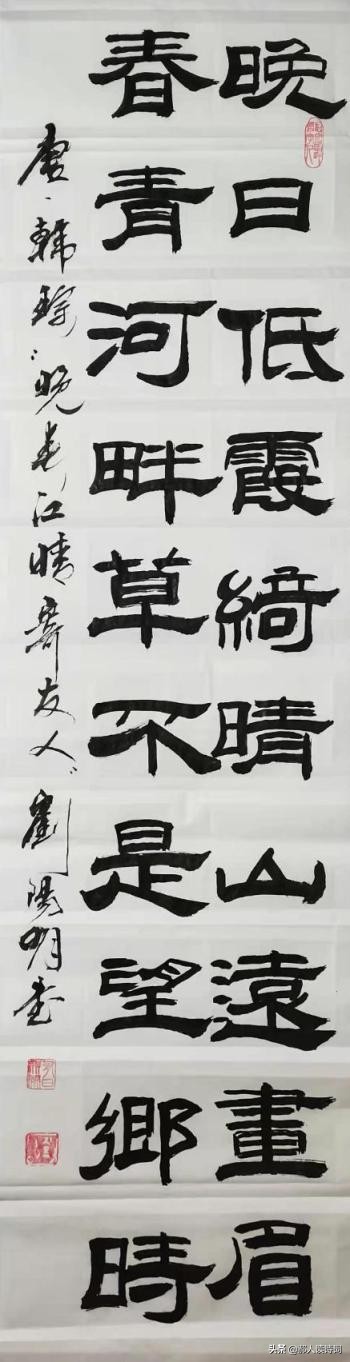 晚日低霞綺晴山遠畫眉
春青河畔草不是望鄉時
唐韓琮晚春江晴寄友人劉陽明書
头条@都人谈诗词